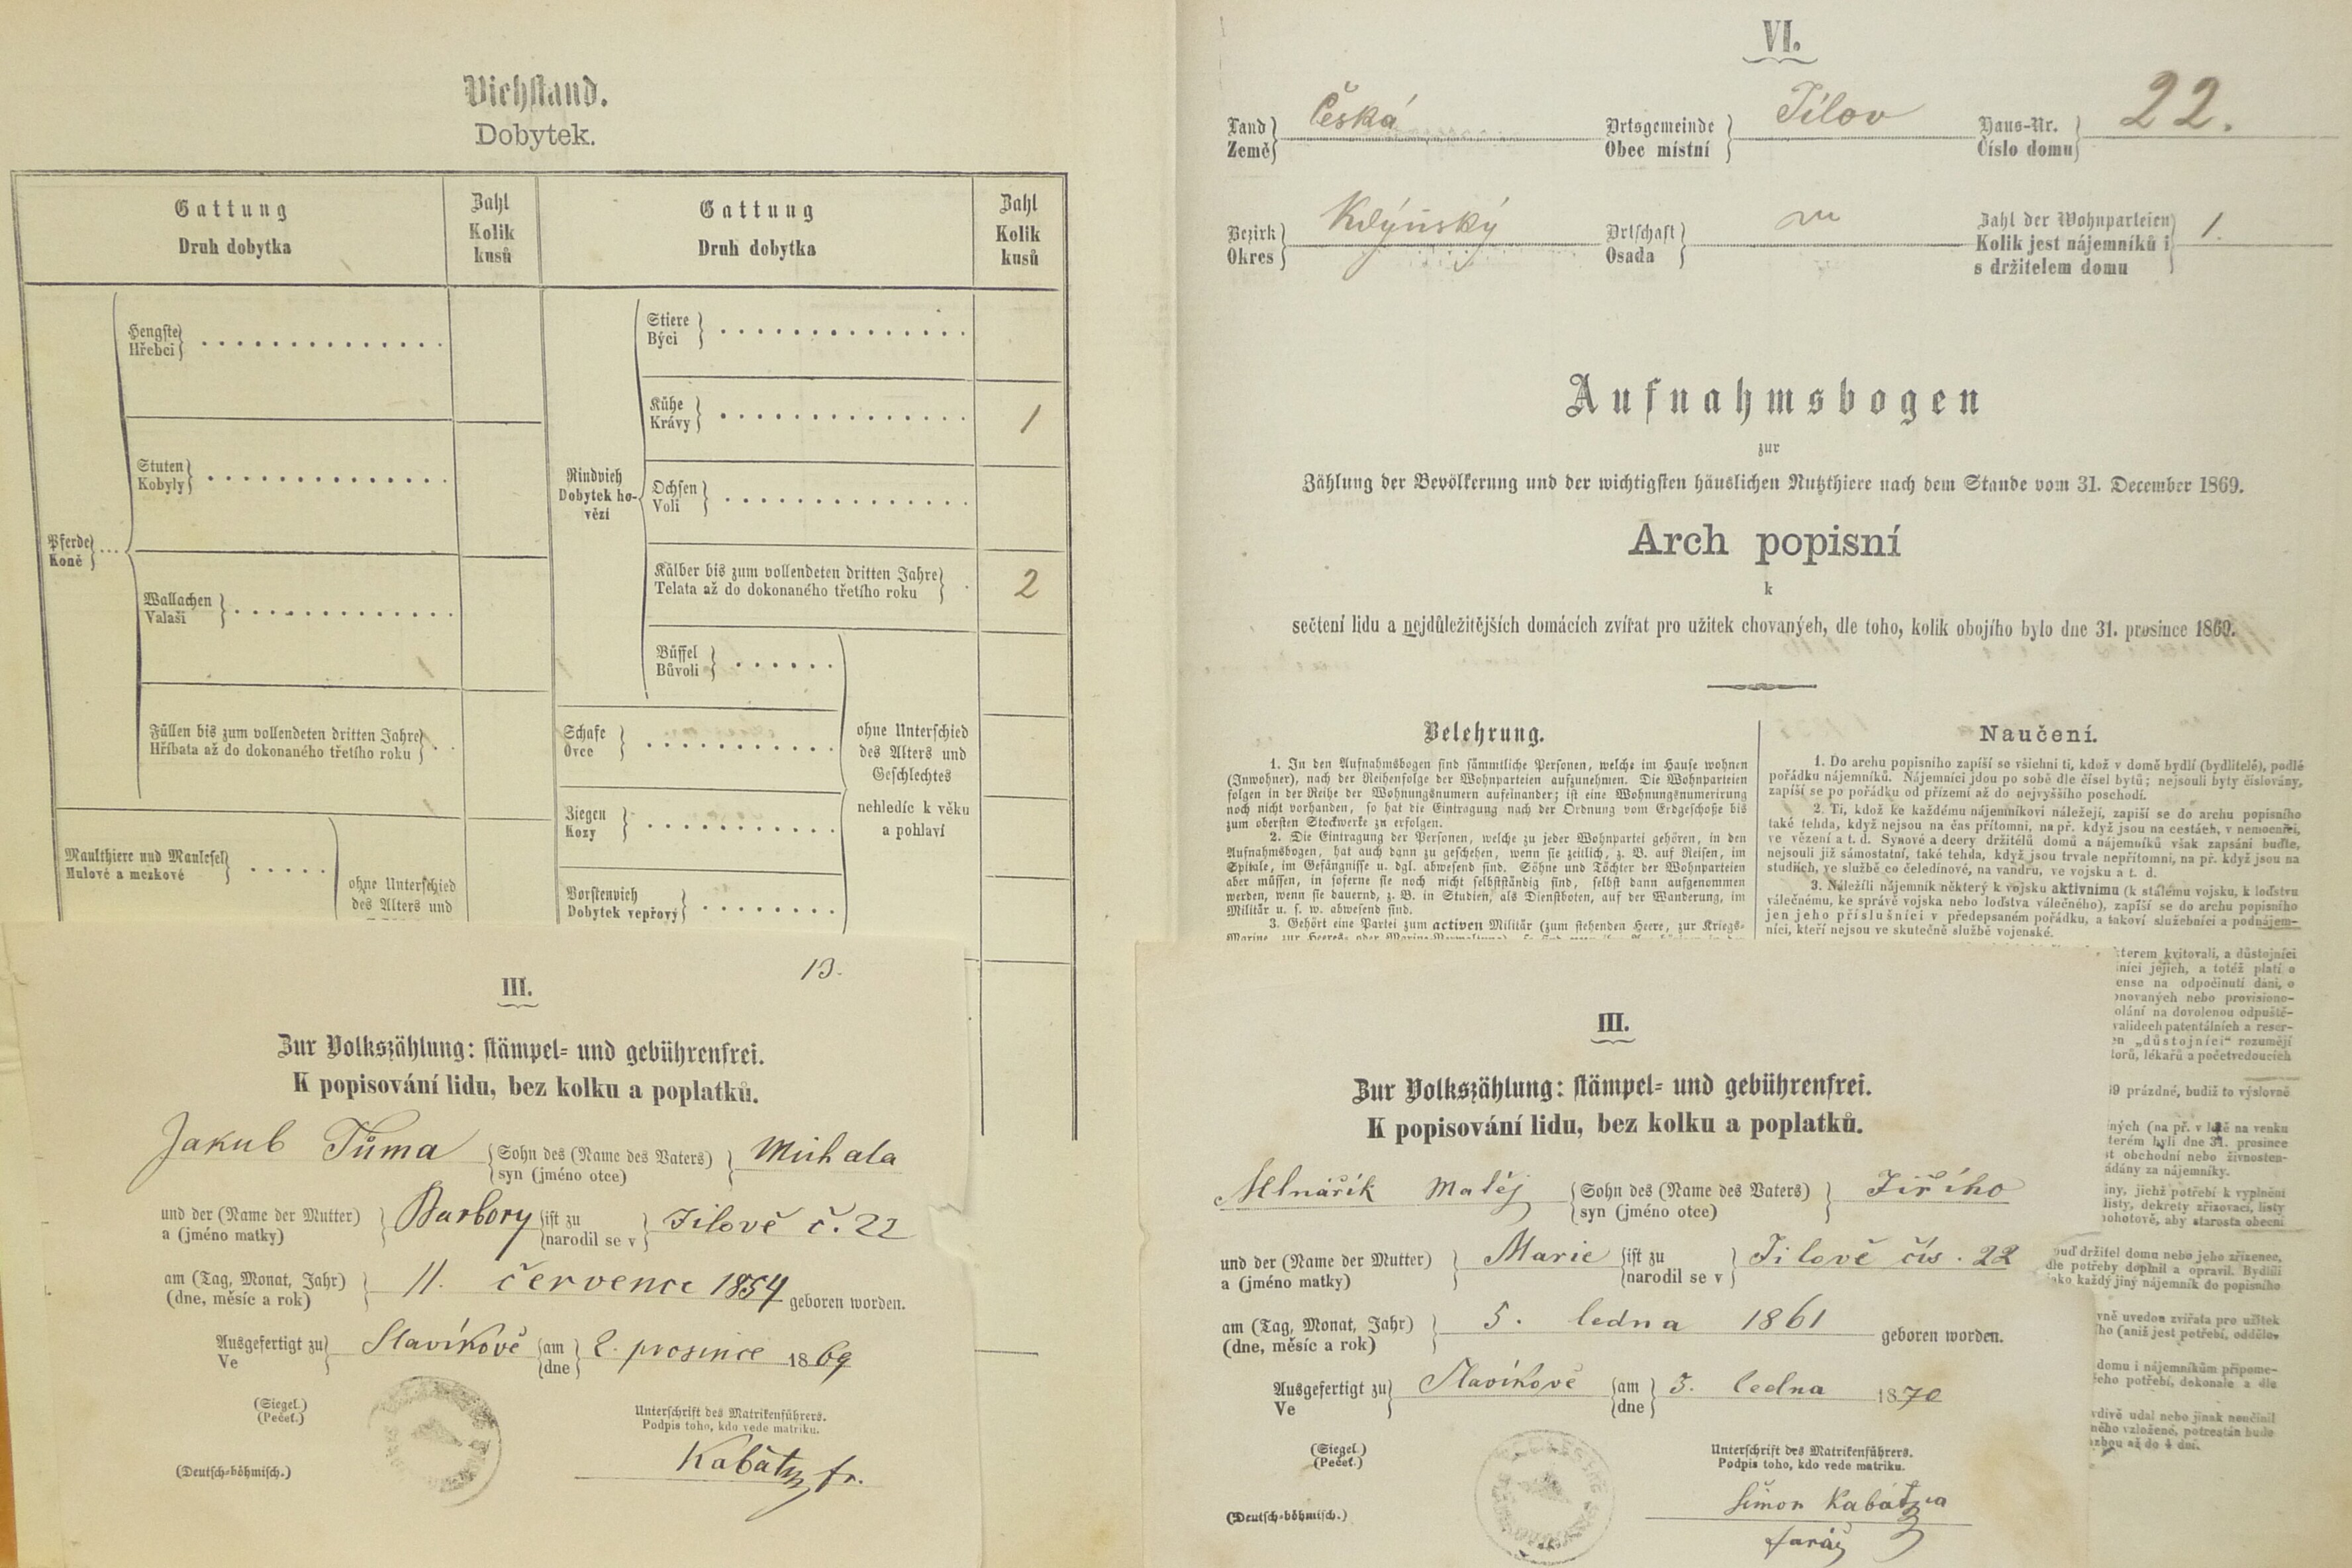 Viehstand.
Dobytek.
Gattung
Druh dobytka
Zahl
Kolik
kusů
Gattung
Druh dobytka
Zahl
Kolik
kusů
Pferde
Koně
Hengste
Hřebci
Stuten
Kobyly
Wallachen
Valaši
Füllen bis zum vollendeten dritten Jahre
Hříbata až do dokonaného třetího roku
Maulthiere und Maulesel
Mulové a mezkové
ohne Unterschied
des Alters und
Rindvieh
Dobytek ho-
vězí
Stiere
Býci
Kühe
Krávy
1
Ochsen
Voli
Kälber bis zum vollendeten dritten Jahre
Telata až do dokonaného třetího roku
2
Büffel
Bůvoli
Schafe
Ovce
Ziegen
Kozy
Borstenvieh
Dobytek vepřový
ohne Unterschied
des Alters und
Geschlechtes
nehledíc k věku
a pohlaví
VI.
Land
Země
Česká
Ortsgemeinde
Obec místní
Jílov
Haus-Nr.
Číslo domu
22.
Bezirk
Okres
Kdýnský
Ortschaft
Osada
Zahl der Wohnparteien
Kolik jest nájemníků i
s držitelem domu
1.
Aufnahmsbogen
zur
Zählung der Bevölkerung und der wichtigsten häuslichen Nutzthiere nach dem Stande vom 31. December 1869.
Arch popisní
k
sečtení lidu a nejdůležitějších domácích zvířat pro užitek chovaných, dle toho, kolik obojího bylo dne 31. prosince 1869.
Belehrung.
1. In den Aufnahmsbogen sind sämmtliche Personen, welche im Hause wohnen
(Inwohner), nach der Reihenfolge der Wohnparteien aufzunehmen. Die Wohnparteien
folgen in der Reihe der Wohnungsnumern aufeinander; ist eine Wohnungsnumerirung
noch nicht vorhanden, so hat die Eintragung nach der Ordnung vom Erdgeschoße bis
zum obersten Stockwerke zu erfolgen.
2. Die Eintragung der Personen, welche zu jeder Wohnpartei gehören, in den
Aufnahmsbogen, hat auch dann zu geschehen, wenn sie zeitlich, z. B. auf Reisen, im
Spitale, im Gefängnisse u. dgl. abwesend sind. Söhne und Töchter der Wohnparteien
aber müssen, in soferne sie noch nicht selbstständig sind, selbst dann aufgenommen
werden, wenn sie dauernd, z. B. in Studien, als Dienstboten, auf der Wanderung, im
Militär u. s. w. abwesend sind.
3. Gehört eine Partei zum activen Militär (zum stehenden Heere, zur Kriegs-
Naučení.
1. Do archu popisního zapíší se všichni ti, kdož v domě bydlí (bydlitelé), podlé
pořádku nájemníků. Nájemníci jdou po sobě dle čísel bytů; nejsouli byty číslovány,
zapíší se po pořádku od přízemí až do nejvyššího poschodí.
2. Ti, kdož ke každému nájemníkovi náležejí, zapíší se do archu popisního
také tehda, když nejsou na čas přítomni, na př. když jsou na cestách, v nemocnici,
ve vězení a t. d. Synové a dcery držitelů domů a nájemníků však zapsáni buďte,
nejsouli již samostatni, také tehda, když jsou trvale nepřítomni, na př. když jsou na
studiích, ve službě co čeledínové, na vandru, ve vojsku a t. d.
3. Náležíli nájemník některý k vojsku aktivnímu (k stálému vojsku, k loďstvu
válečnému, ke správě vojska nebo loďstva válečného), zapíší se do archu popisního
jen jeho příslušníci v předepsaném pořádku, a takoví služebníci a podnájem-
níci, kteří nejsou ve skutečné službě vojenské.
kterem kvitovali, a důstojníci
jejich, a totéž platí o
na odpočinutí dáni, o
nebo provisiono-
na dovolenou odpuště-
validech patentálních a reser-
„důstojníci“ rozumějí
lékařů a početvedoucích
prázdné, budiž to výslovně
(na př. v létě na venku
byli dne 31. prosince
obchodní nebo živnosten-
za nájemníky.
jichž potřebí k vyplnění
listy, dekrety zřizovací, listy
pohotově, aby starosta obecní
buď držitel domu nebo jeho zřízenec,
dle potřeby doplnil a opravil. Bydlili
jako každý jiný nájemník do popisního
uveden zvířata pro užitek
(aniž jest potřebí, oddělov
domu i nájemníkům připome-
potřebí, dokonale a dle
udal nebo jinak neučinil
vzložené, potrestán bude
až do 4 dní.
13.
III.
Zur Volkszählung: stämpel- und gebührenfrei.
K popisování lidu, bez kolku a poplatků.
Jakub Tůma Sohn des (Name des Vaters) Michala
syn (jméno otce)
und der (Name der Mutter) Barbory ist zu Jilově č. 22
a (jméno matky) narodil se v
am (Tag, Monat, Jahr) 11. července 1854 geboren worden.
(dne, měsíc a rok)
Ausgefertigt zu Slavíkově am 2. prosince 1869
Ve dne
(Siegel.)
(Pečeť.)
Unterschrift des Matrikenführers.
Podpis toho, kdo vede matriku.
(Deutsch-böhmisch.)
III.
Zur Volkszählung: stämpel- und gebührenfrei.
K popisování lidu, bez kolku a poplatků.
Mlnářik Matěj Sohn des (Name des Vaters) Jiřího
syn (jméno otce)
und der (Name der Mutter) Marie ist zu Jilově čís. 22
a (jméno matky) narodil se v
am (Tag, Monat, Jahr) 5. ledna 1861 geboren worden.
(dne, měsíc a rok)
Ausgefertigt zu Slavíkově am 3. ledna 1870
Ve dne
(Siegel.)
(Pečeť.)
Unterschrift des Matrikenführers.
Podpis toho, kdo vede matriku.
(Deutsch-böhmisch.)
Šimon Kabátzia
farář